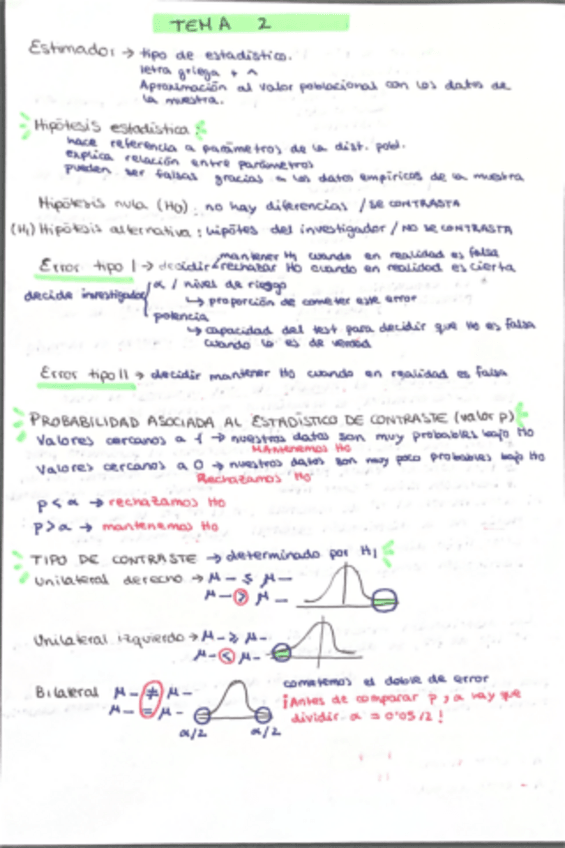 TEMA 2
Estimador → tipo de estadístico.
letra griega + ^
Aproximación al valor poblacional con los datos de
la muestra.
Hipótesis estadística:
hace referencia a parámetros de la dist. pobl.
explica relación entre parámetros
pueden ser falsas gracias a los datos empíricos de la muestra
Hipótesis nula (H0): no hay diferencias / SE CONTRASTA
(H1) Hipótesis alternativa: hipótes del investigador / NO SE CONTRASTA
mantener H1 cuando en realidad es falsa
Error tipo I → decidir rechazar H0 cuando en realidad es cierta
decide investigador α / nivel de riesgo
↳ proporción de cometer este error
potencia
↳ capacidad del test para decidir que H0 es falsa
cuando lo es de verdad
Error tipo II → decidir mantener H0 cuando en realidad es falsa
PROBABILIDAD ASOCIADA AL ESTADÍSTICO DE CONTRASTE (valor p)
Valores cercanos a 1 → nuestros datos son muy probables bajo H0
Mantenemos H0
Valores cercanos a 0 → nuestros datos son muy poco probables bajo H0
Rechazamos H0
p < α → rechazamos H0
p > α → mantenemos H0
TIPO DE CONTRASTE → determinado por H1
Unilateral derecho → μ - ≤ μ -
μ - > μ -
Unilateral izquierdo → μ - ≥ μ -
μ - < μ -
cometemos el doble de error
Bilateral μ - ≠ μ -
μ - = μ -
¡Antes de comparar p y α hay que
dividir α = 0'05/2!
α/2 α/2